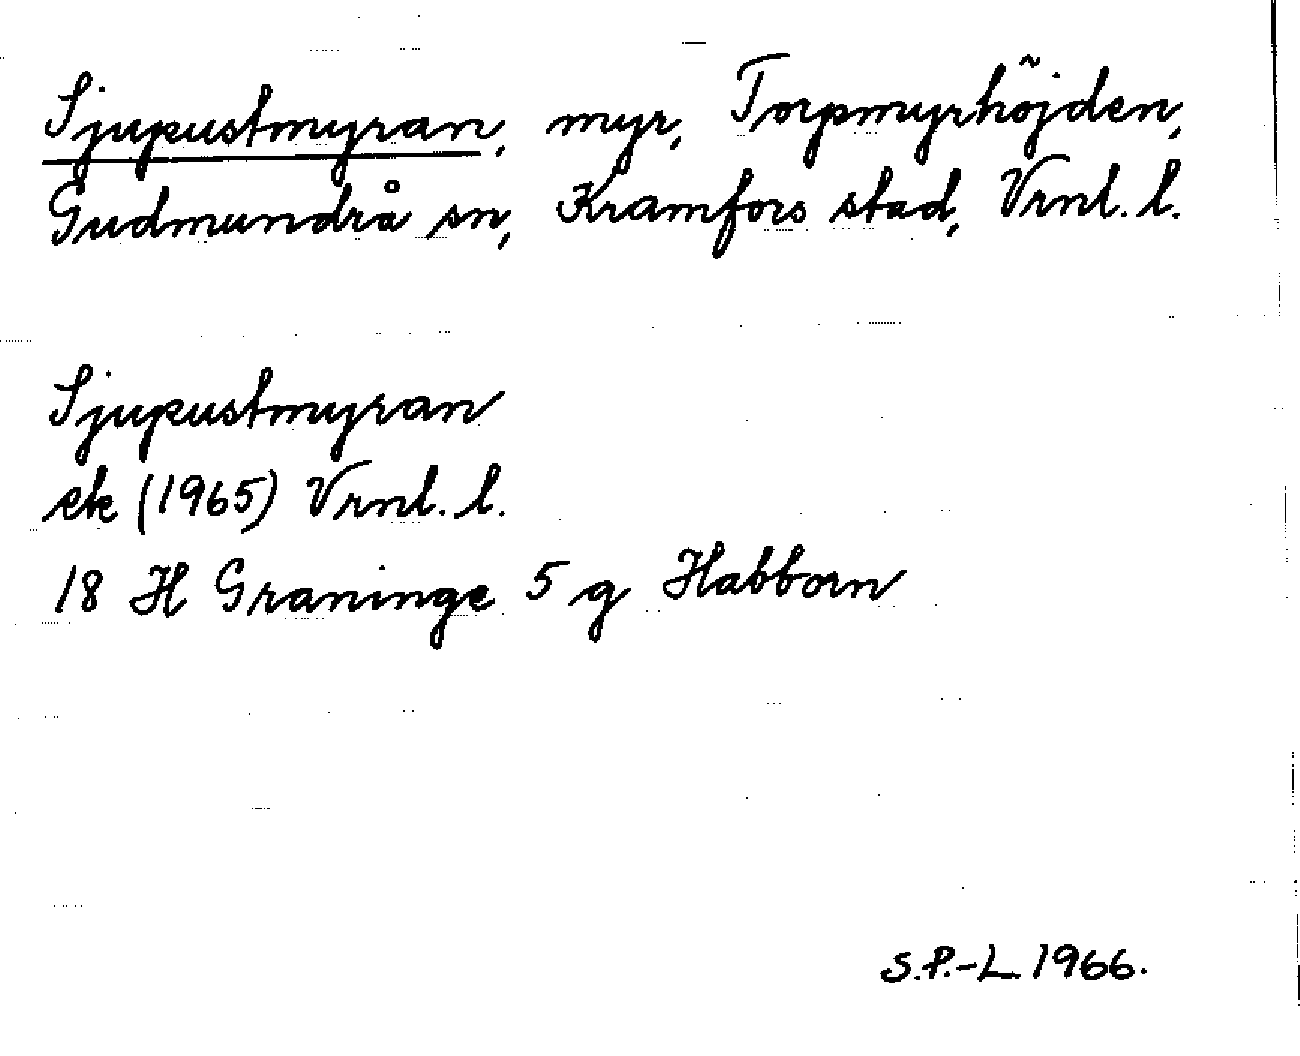 Sjupustmyran, myr, Torpmyrhöjden,
Gudmundrå sn, Kramfors stad, Vrnl. l.
Sjupustmyran
ek (1965) Vrnl. l.
18 H Graninge 5 g Habborn
S.P.-L. 1966.